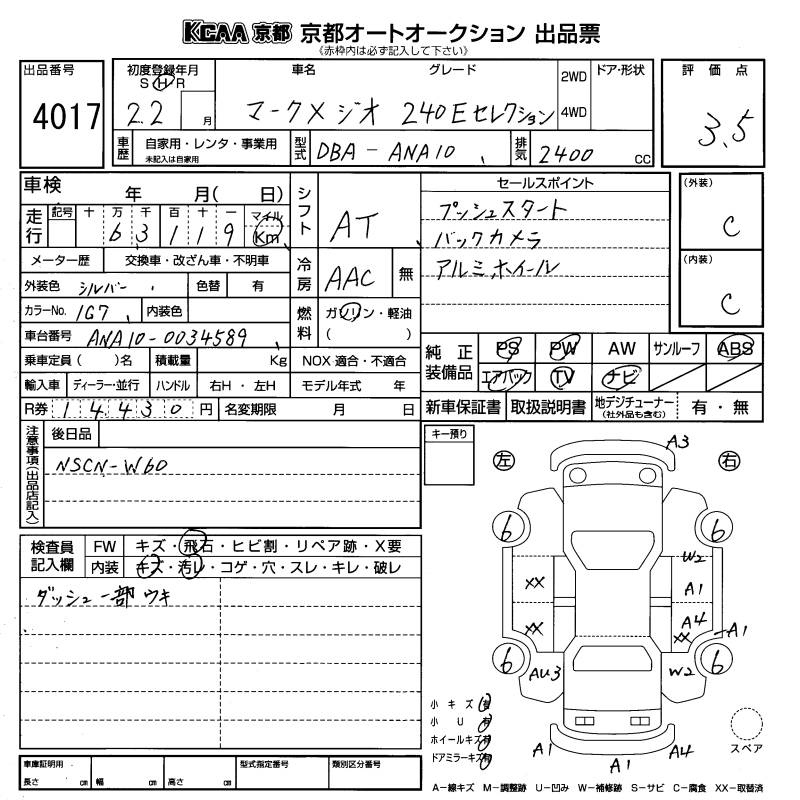 KCAA 京都 京都オートオークション 出品票
《赤枠内は必ず記入して下さい》
出品番号
4017
初度登録年月
S H R
22 月
車名 グレード
マークXジオ 240Eセレクション
2WD
4WD
ドア・形状
評価点
3.5
車歴
自家用・レンタ・事業用
未記入は自家用
型式
DBA-ANA10
排気
2400 CC
車検 年 月( 日)
走行
記号 十 万 千 百 十 一 マイル
6 3 1 1 9 Km
シフト
AT
メーター歴 交換車・改ざん車・不明車
外装色 シルバー 色替 有
冷房
AAC 無
カラーNo. 1G7 内装色
燃料
ガソリン・軽油
( )
車台番号 ANA10-0034589
乗車定員( )名 積載量 Kg NOX適合・不適合
輸入車 ディーラー・並行 ハンドル 右H・左H モデル年式 年
R券 14430 円 名変期限 月 日
セールスポイント
プッシュスタート
バックカメラ
アルミホイール
(外装)
C
(内装)
C
純正装備品
PS PW AW サンルーフ ABS
エアバック TV ナビ
新車保証書 取扱説明書 地デジチューナー(社外品も含む) 有・無
注意事項(出品店記入)
後日品
NSCN-W60
検査員記入欄
FW キズ・飛石・ヒビ割・リペア跡・X要
内装 キズ・汚レ・コゲ・穴・スレ・キレ・破レ
ダッシュ一部ウキ
キー預り
左 右
A3
6 6
W2
XX A1
A4
XX XX A1
6 6
AU3 W2
小キズ 有
小U 有
ホイールキズ 有
ドアミラーキズ 有
A1 A1 A4
スペア
A-線キズ M-調整跡 U-凹み W-補修跡 S-サビ C-腐食 XX-取替済
車庫証明用 型式指定番号 類別区分番号
長さ cm 幅 cm 高さ cm